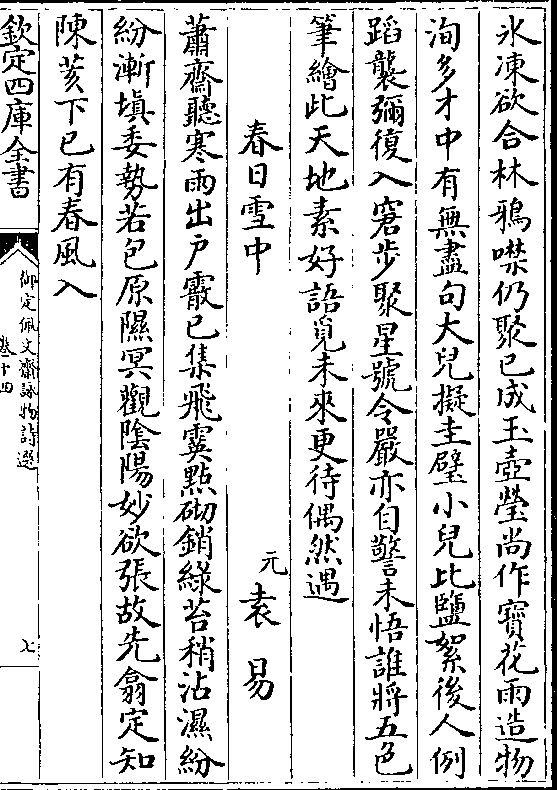 氷凍欲合林鴉噤仍聚已成玉壺瑩尚作寳花雨造物
洵多才中有無盡句大兒擬圭璧小兒比鹽絮後人例
蹈襲彌復入窘步聚星號令嚴亦自警未悟誰將五色
筆繪此天地素好語覓未來更待偶然遇
春日雪中
元袁易
蕭齋聽寒雨出户霰已集飛霙點砌銷緑苔稍沾濕紛
紛漸塡委勢若包原隰冥觀陰陽妙欲張故先翕定知
陳荄下已有春風入
欽定四庫全書
御定佩文齋詠物詩選
卷十四
七